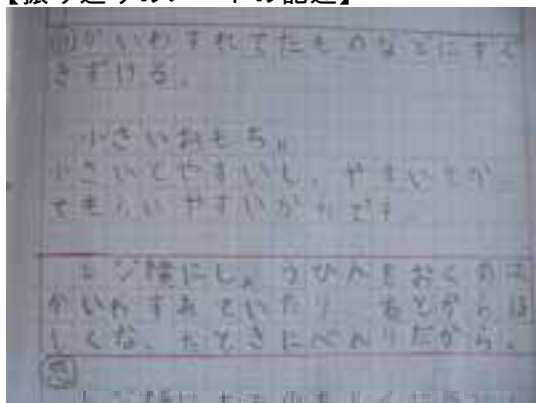 【振り返りのノートの記述】
かいわすれてたものなどにすぐ
きずける。
小さいおもちゃ
小さいとやすいし、やすいとか
てもらいやすいからです。
レジ横にしょうひんをおくのは
かいわすれていたり、あとからほ
しくなったときにべんりだから。
レジ横に